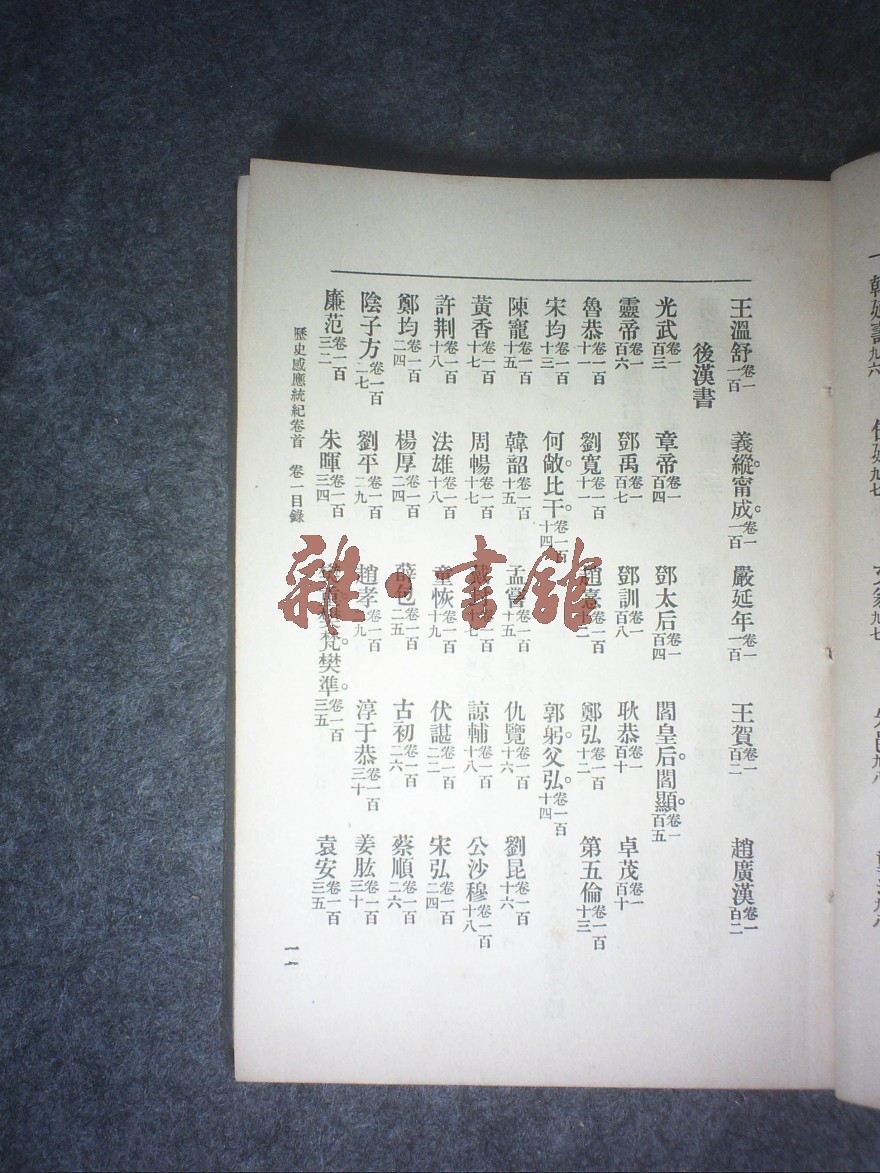 王溫舒卷一一百 義縱。甯成。卷一一百 嚴延年卷一一百 王賀卷一百二 趙廣漢卷一百二
後漢書
光武卷一百三 章帝卷一百四 鄧太后卷一百四 閻皇后。閻顯。卷一百五
靈帝卷一百六 鄧禹卷一百七 鄧訓卷一百八 耿恭卷一百十 卓茂卷一百十
魯恭卷一百十一 劉寬卷一百十一 趙憙卷一百十二 鄭弘卷一百十二 第五倫卷一百十三
宋均卷一百十三 何敞。比干。卷一百十四 郭躬。父弘。卷一百十四
陳寵卷一百十五 韓韶卷一百十五 孟嘗卷一百十五 仇覽卷一百十六 劉昆卷一百十六
黃香卷一百十七 周暢卷一百十七 卷一百十七 諒輔卷一百十八 公沙穆卷一百十八
許荆卷一百十八 法雄卷一百十八 童恢卷一百十九 伏諶卷一百二二 宋弘卷一百二四
鄭均卷一百二四 楊厚卷一百二四 薛包卷一百二五 古初卷一百二六 蔡順卷一百二六
陰子方卷一百二七 劉平卷一百二九 趙孝卷一百二九 淳于恭卷一百三十 姜肱卷一百三十
廉范卷一百三二 朱暉卷一百三四 樊梵樊準。卷一百三五 袁安卷一百三五
歷史感應統紀卷首 卷一目錄
雜·書館